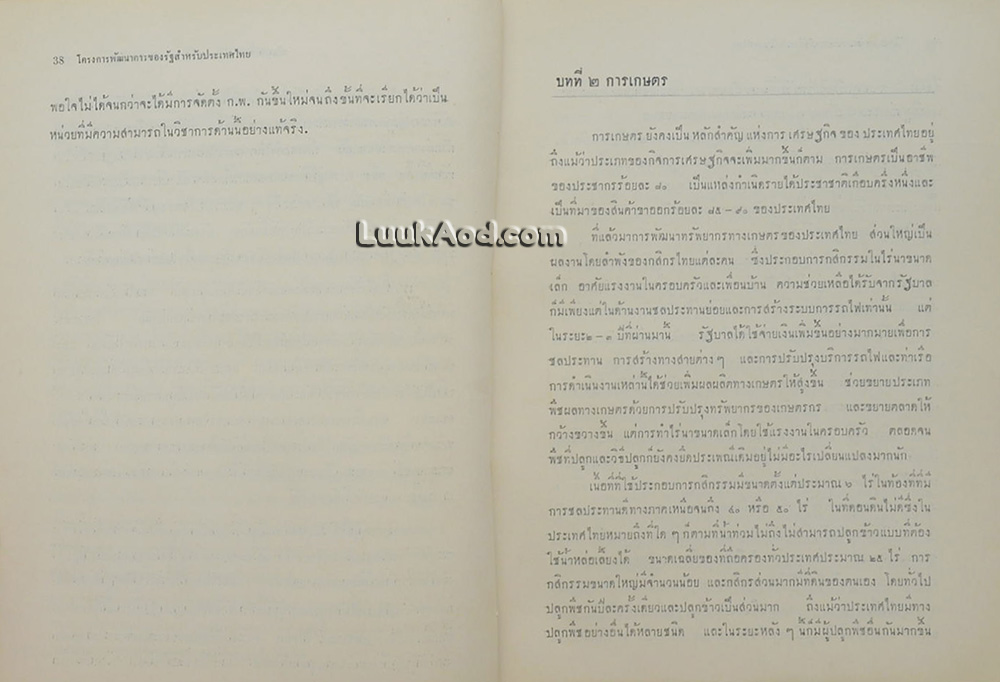 38 โครงการพัฒนาการของรัฐสำหรับประเทศไทย
พอใจไม่ได้จนกว่าจะได้มีการจัดตั้ง ก.พ. กันขึ้นใหม่จนถึงขั้นที่จะเรียกได้ว่าเป็น
หน่วยที่มีความสามารถในวิชาการด้านนี้อย่างแท้จริง.
LuukAod.com
บทที่ ๒ การเกษตร
การเกษตร ยังคงเป็น หลักสำคัญ แห่งการ เศรษฐกิจ ของ ประเทศไทยอยู่
ถึงแม้ว่าประเภทของกิจการเศรษฐกิจจะเพิ่มมากขึ้นก็ตาม การเกษตรเป็นอาชีพ
ของประชากรร้อยละ ๘๐ เป็นแหล่งกำเนิดรายได้ประชาชาติเกือบครึ่งหนึ่งและ
เป็นที่มาของสินค้าขาออกร้อยละ ๘๕ – ๙๐ ของประเทศไทย
ที่แล้วมาการพัฒนาทรัพยากรทางเกษตรของประเทศไทย ส่วนใหญ่เป็น
ผลงานโดยลำพังของกสิกรไทยแต่ละคน ซึ่งประกอบการกสิกรรมในไร่นาขนาด
เล็ก อาศัยแรงงานในครอบครัวและเพื่อนบ้าน ความช่วยเหลือได้รับจากรัฐบาล
ก็มีเพียงแต่ในด้านงานชลประทานย่อยและการสร้างระบบการรถไฟเท่านั้น แต่
ในระยะ ๒ – ๓ ปีที่ผ่านมานี้ รัฐบาลได้ใช้จ่ายเงินเพิ่มขึ้นอย่างมากมายเพื่อการ
ชลประทาน การสร้างทางสายต่าง ๆ และการปรับปรุงบริการรถไฟและท่าเรือ
การดำเนินงานเหล่านี้ได้ช่วยเพิ่มผลผลิตทางเกษตรให้สูงขึ้น ช่วยขยายประเภท
พืชผลทางเกษตรด้วยการปรับปรุงทรัพยากรของเกษตรกร และขยายตลาดให้
กว้างขวางขึ้น แต่การทำไร่นาขนาดเล็กโดยใช้แรงงานในครอบครัว ตลอดจน
พืชที่ปลูกและวิธีปลูกก็ยังคงยึดประเพณีเดิมอยู่ไม่มีอะไรเปลี่ยนแปลงมากนัก
เนื้อที่ที่ใช้ประกอบการกสิกรรมมีขนาดตั้งแต่ประมาณ ๖ ไร่ในท้องที่ที่มี
การชลประทานดีทางภาคเหนือจนถึง ๔๐ หรือ ๕๐ ไร่ ในที่ดอนดินไม่ดีซึ่งใน
ประเทศไทยหมายถึงที่ใด ๆ ก็ตามที่น้ำท่วมไม่ถึงไม่สามารถปลูกข้าวแบบที่ต้อง
ใช้น้ำหล่อเลี้ยงได้ ขนาดเฉลี่ยของที่ถือครองทั่วประเทศประมาณ ๒๕ ไร่ การ
กสิกรรมขนาดใหญ่มีจำนวนน้อย และกสิกรส่วนมากมีที่ดินของตนเอง โดยทั่วไป
ปลูกพืชกันปีละครั้งเดียวและปลูกข้าวเป็นส่วนมาก ถึงแม้ว่าประเทศไทยมีทาง
ปลูกพืชอย่างอื่นได้หลายชนิด และในระยะหลัง ๆ นี้ก็มีผู้ปลูกพืชอื่นกันมากขึ้น